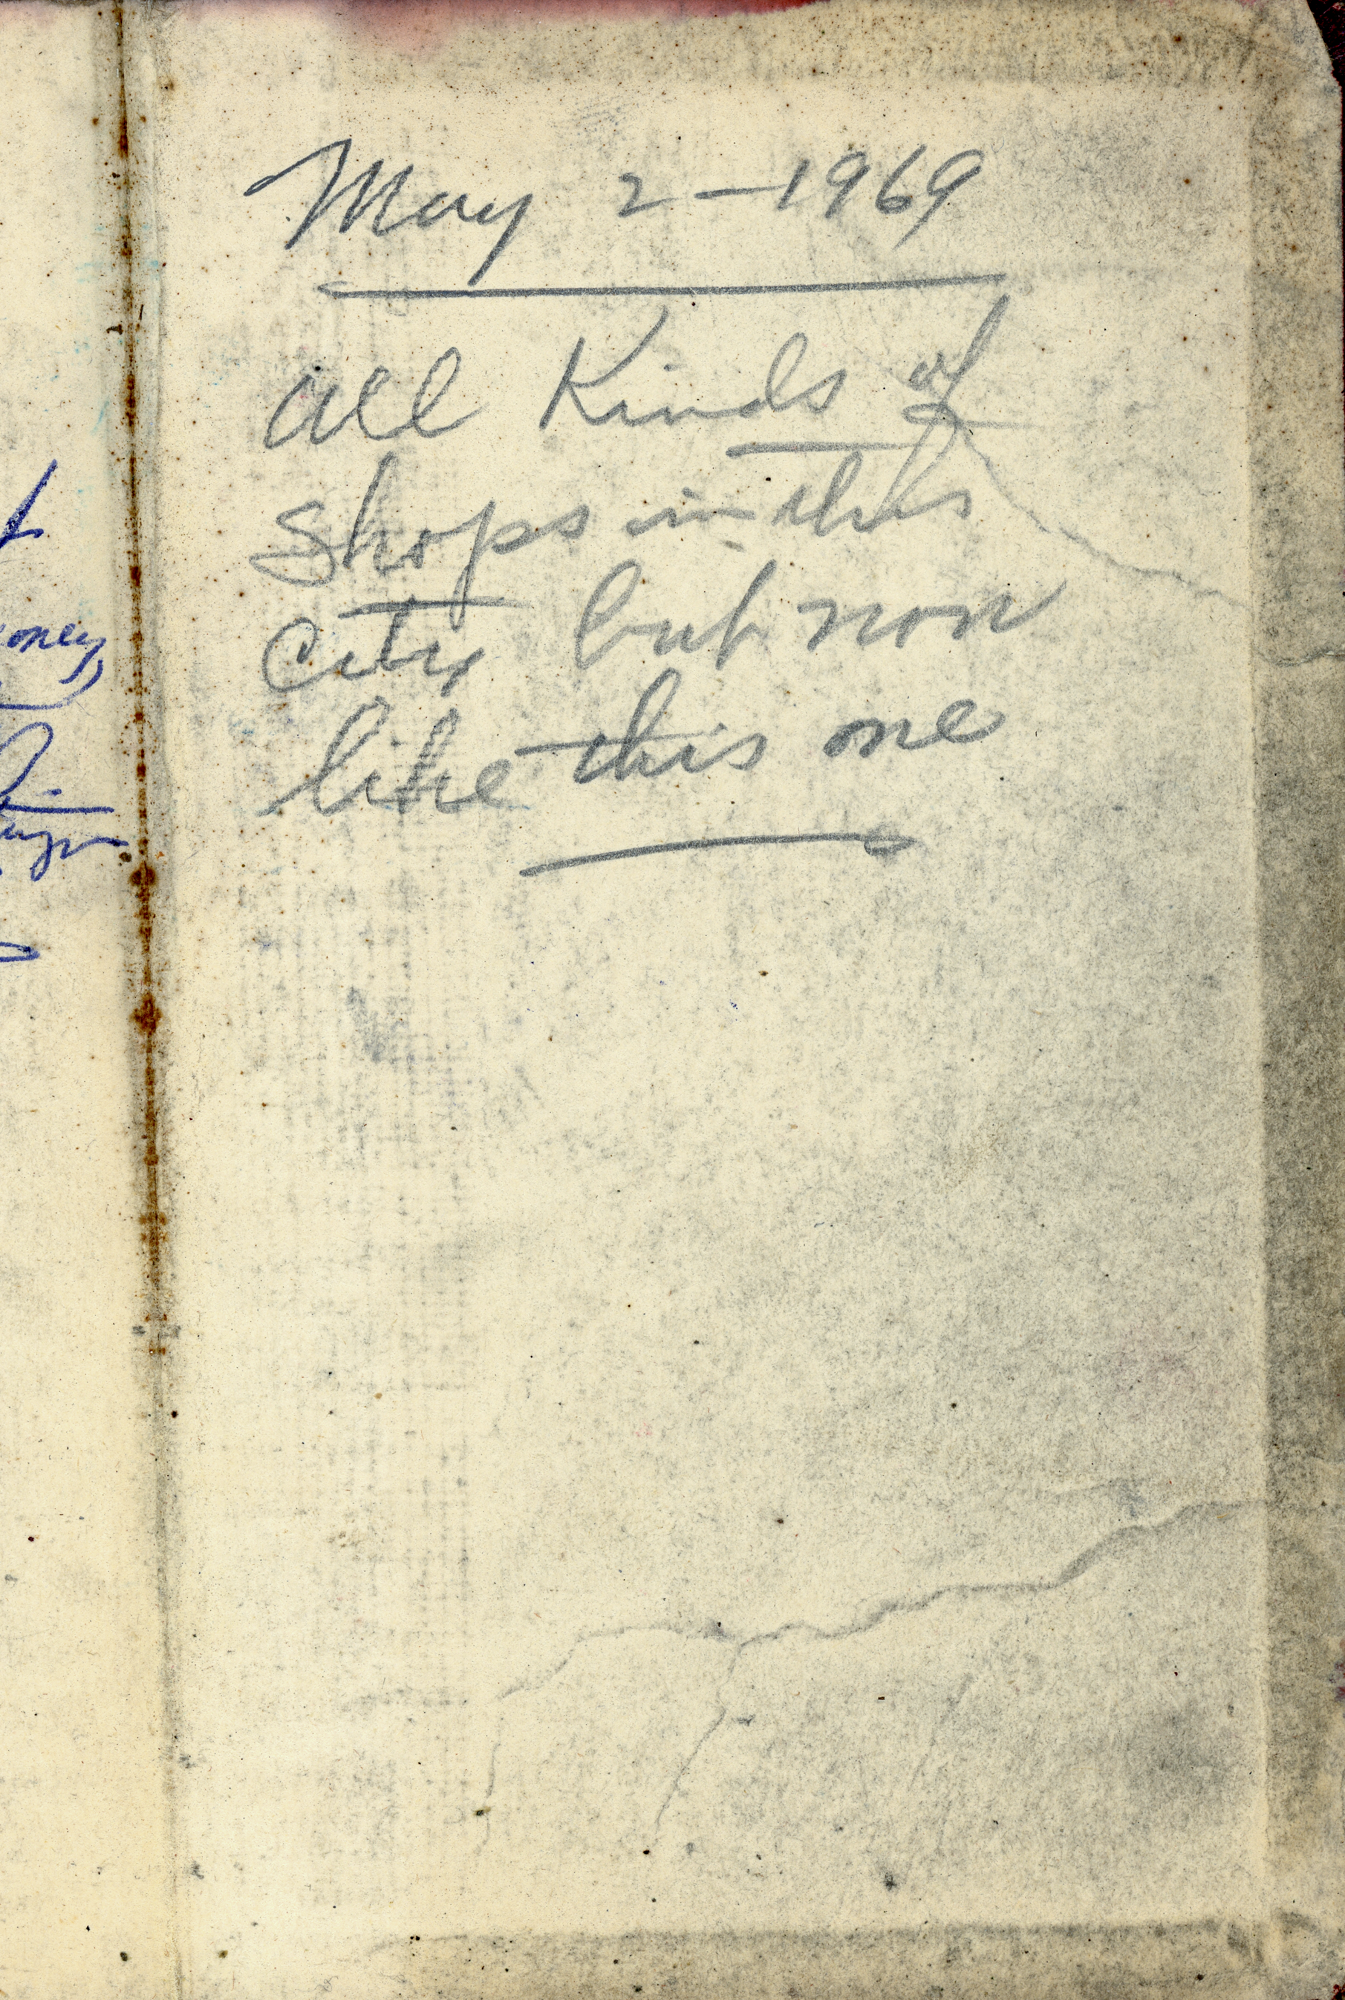 May 2-1969
all Kinds of
shops in this
city but non
like this one
oney